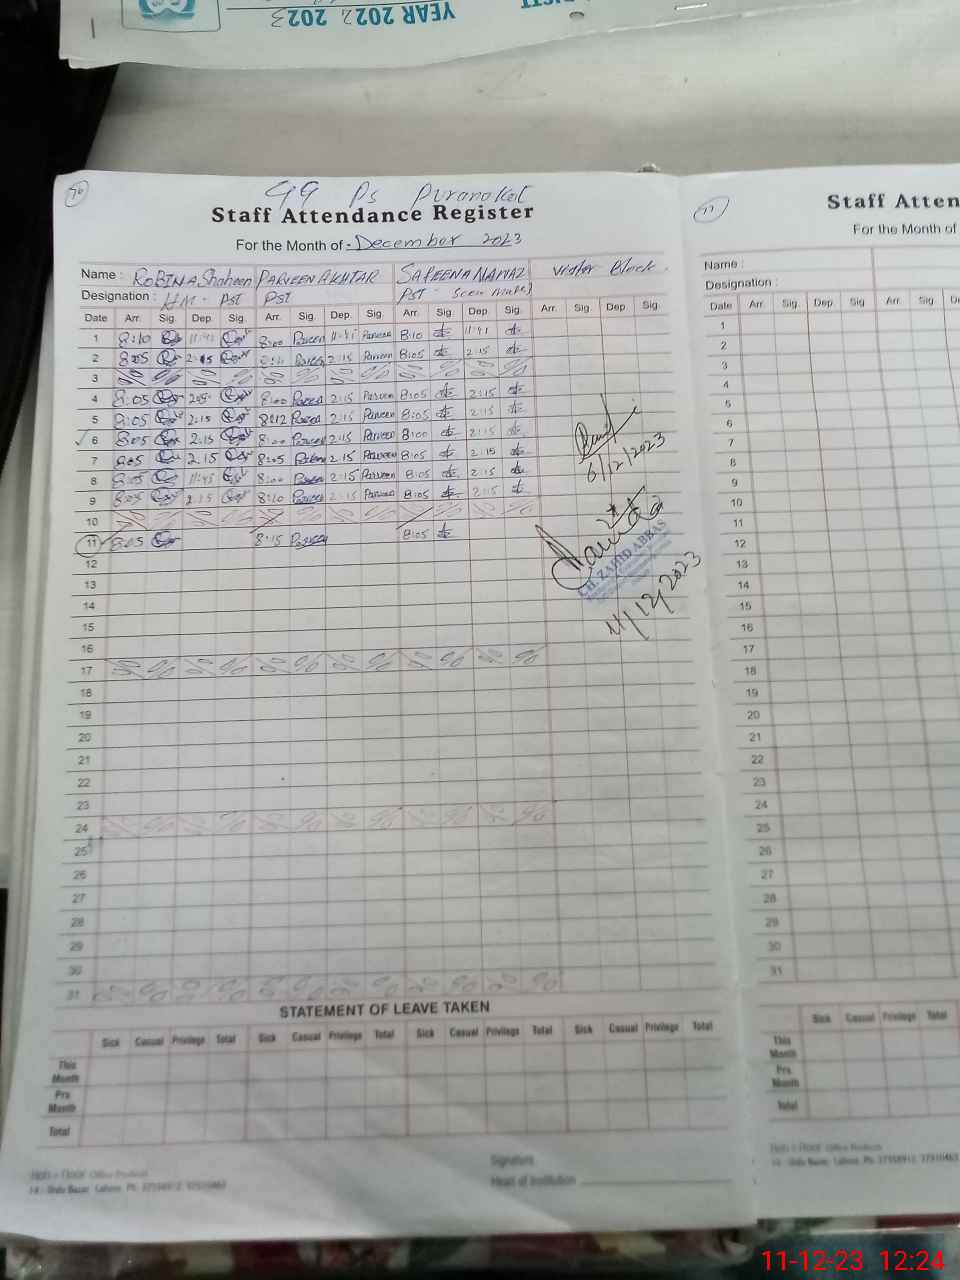 YEAR 2022, 2023
76
GG Ps Puranakot
Staff Attendance Register
For the Month of December 2023
Name : RoBINA Shaheen PARVEEN AKHTAR SAFEENA NAWAZ Visitor Block
Designation : HM - PST PST PST -
Date Arr. Sig. Dep. Sig. Arr. Sig. Dep. Sig. Arr. Sig. Dep. Sig. Arr. Sig. Dep. Sig.
1 8:10 11:45 8:00 Parveen 11:45 Parveen 8:10 11:41
2 8:05 2:15 Parveen 2:15 Parveen 8:05 2:15
3
4 8:05 8:00 Parveen 2:15 Parveen 8:05 2:15
5 8:05 2:15 8:12 Parveen 2:15 Parveen 8:05 2:15
6 8:05 2:15 8:00 Parveen 2:15 Parveen 8:00 2:15
7 8:05 2:15 8:05 Parveen 2:15 Parveen 8:05 2:15
8 8:05 11:45 8:00 Parveen 2:15 Parveen 8:05 2:15
6/12/2023
9 8:05 2:15 8:10 Parveen 2:15 Parveen 8:05 2:15
10
11 8:05 8:15 Parveen 8:05
CH. ZAHID ABBAS
11/12/2023
12
13
14
15
16
17
18
19
20
21
22
23
24
25
26
27
28
29
30
31
STATEMENT OF LEAVE TAKEN
Sick Casual Privilege Total Sick Casual Privilege Total Sick Casual Privilege Total Sick Casual Privilege Total
This Month
Pre Month
Total
Signature
Head of Institution
77
Staff Atten
For the Month of
Name :
Designation :
Date Arr. Sig. Dep. Sig. De
1
2
3
4
5
6
7
8
9
10
11
12
13
14
15
16
17
18
19
20
21
22
23
24
25
26
27
28
29
30
31
Sick Casual Privilege Total
This Month
Pre Month
Total
11-12-23 12:24